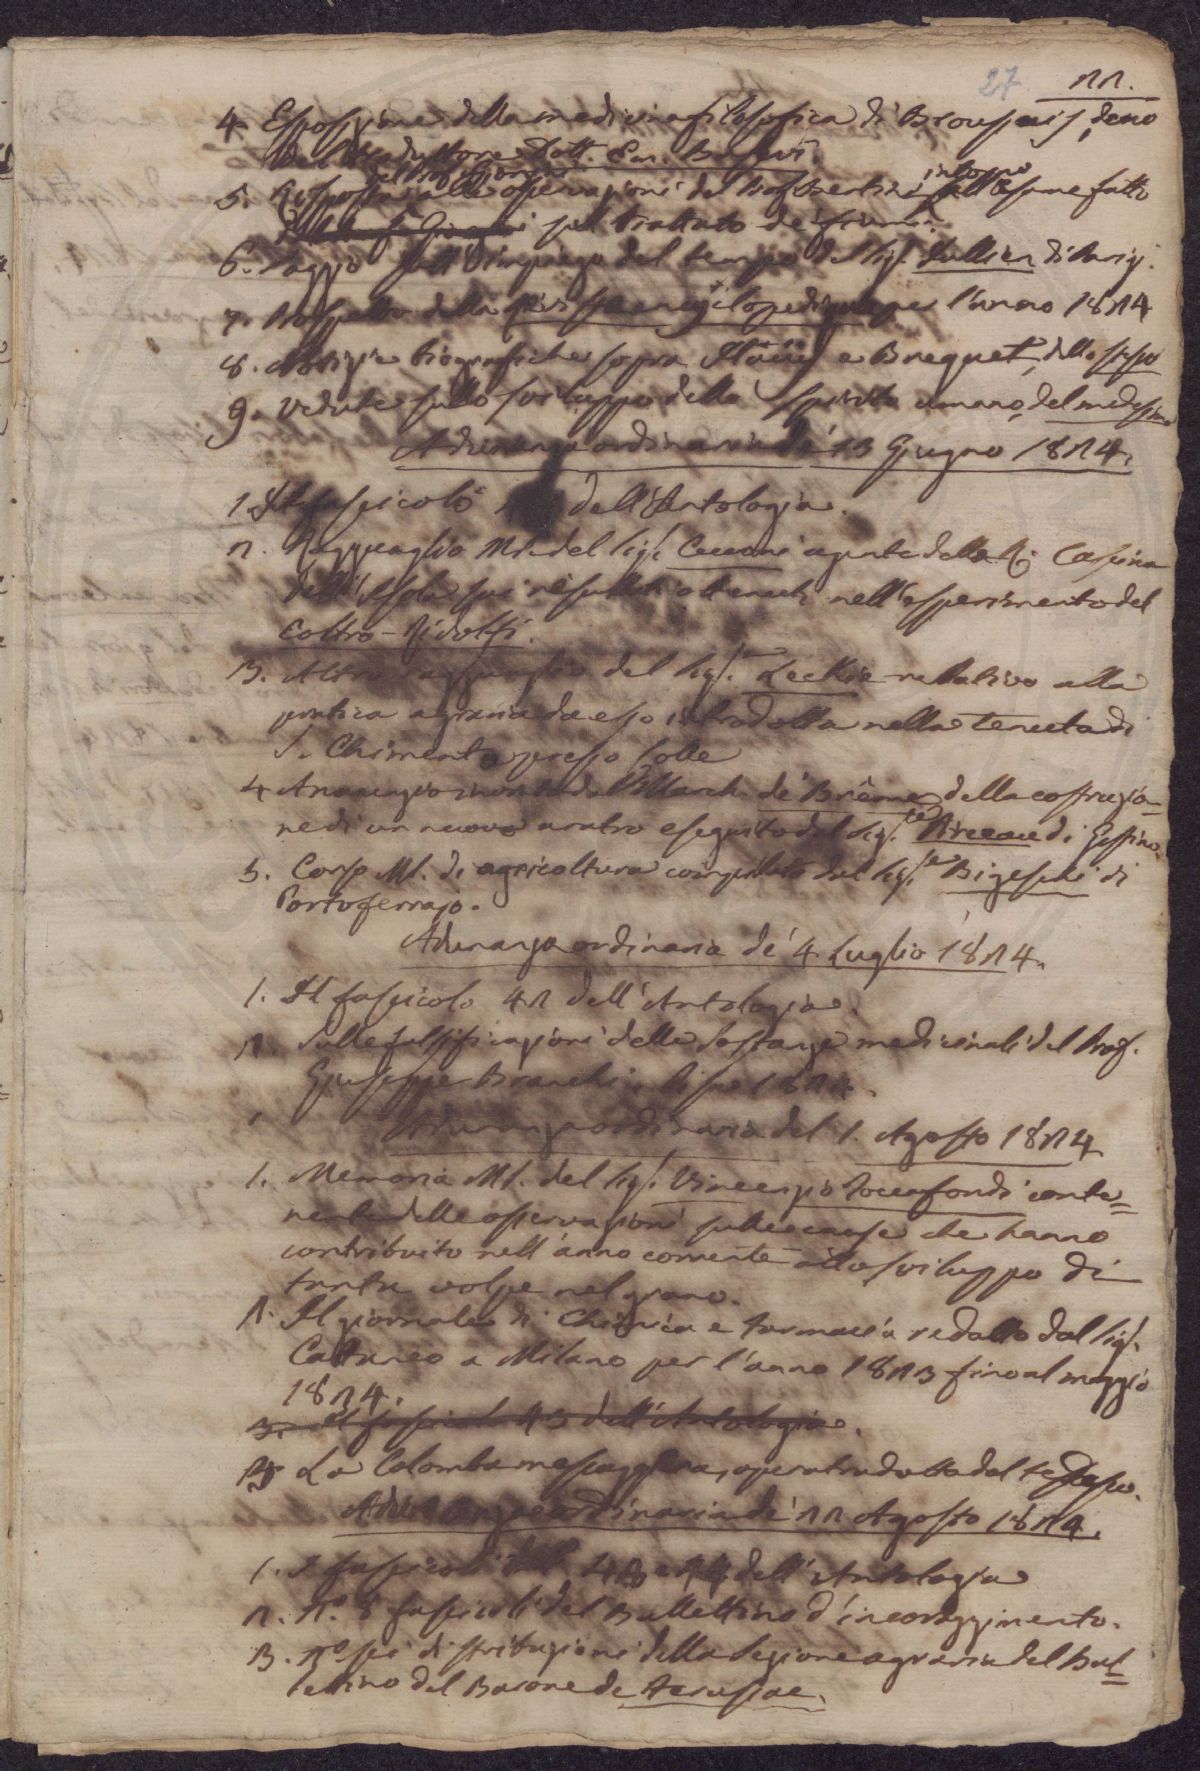 27 22.
4. Esposizione della medicina filosofica di Broussais, dono
del traduttore Dott.
del Prof. Giorgini intorno
5. Risposta alle osservazioni del Prof. all'esame fatto
sul Trattato de' fiumi.
6. Saggio sull'impiego del tempo del Sig. Jullien di Parigi.
7. Prospetto della per l'anno 1824
8. Notizie biografiche sopra e Breguet, dello stesso
9. Vedute sullo sviluppo dello spirito umano, del medesimo
Adunanza ordinaria de' 13 Giugno 1824.
1. Il fascicolo dell'Antologia.
2. Ragguaglio Ms. del Sig. agente della R. Cascina
dell'Isola sui resultati ottenuti nell'esperimento del
Coltro-Ridolfi.
3. Altro ragguaglio del Sig.re Leckie relativo alla
pratica agraria da esso introdotta nella tenuta di
S. Chimento presso Colle
4. Annunzio inviato dal March. de Brême della costruzio=
ne di un nuovo aratro eseguito dal Sig.re di
5. Corso Ms. di agricoltura compilato dal Sig.re Bigeschi di
Portoferrajo.
Adunanza ordinaria de' 4 Luglio 1824.
1. Il fascicolo 42 dell'Antologia.
2. Sulle falsificazioni delle sostanze medicinali del Prof.
Giuseppe Branchi. Pisa 1824.
Adunanza ordinaria del 1. Agosto 1824
1. Memoria Ms. del Sig. Vincenzio Toccafondi conte=
nente delle osservazioni sulle cause che hanno
contribuito nell'anno corrente allo sviluppo di
tanta volpe nel grano.
2. Il giornale di Chimica e farmacia redatto dal Sig.
Cattaneo a Milano per l'anno 1823 fino al maggio
1824.
3. Il fascicolo 43 dell'Antologia.
La Colomba messaggera, opera tradotta dal
Adunanza ordinaria de' 22 Agosto 1824.
1. I fascicoli 43 e 44 dell'Antologia
2. N.o 8 fascicoli del Bullettino d'incoraggimento.
3. N.o sei distribuzioni della sezione agraria del Bul=
lettino del Barone de Ferussac.